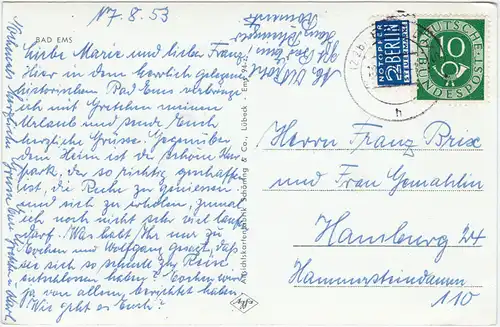 17.8.53
BAD EMS
Liebe Marie und lieber Franz!
Hier in dem herrlich gelegenen
historischen Bad Ems verbringe
ich mit Gretchen meinen
Urlaub und sende Euch
herzliche Grüsse. Gegenüber
dem Heim ist der schöne Kur-
park, der so richtig geschaffen
ist, die Ruhe zu geniessen
und sich zu erholen, zumal
ich noch nicht sehr viel laufen
darf. Was habt Ihr nur zu
Jochen und Wolfgang gesagt, daß
sie sich so schnell zur Reise
entschlossen haben? Jochen wird
ja von allem berichtet haben.
Wie geht es Euch?
Nochmals herzliche Grüsse
Karl
Bad Ems
Ansichtskartenfabrik Schöning & Co., Lübeck - Ems
Agfa
NOTOPFER
2 BERLIN
STEUERMARKE
DEUTSCHE
BUNDESPOST
10
h
Herrn Franz Brix
und Frau Gemahlin
Hamburg 24
Hammersteindamm
110